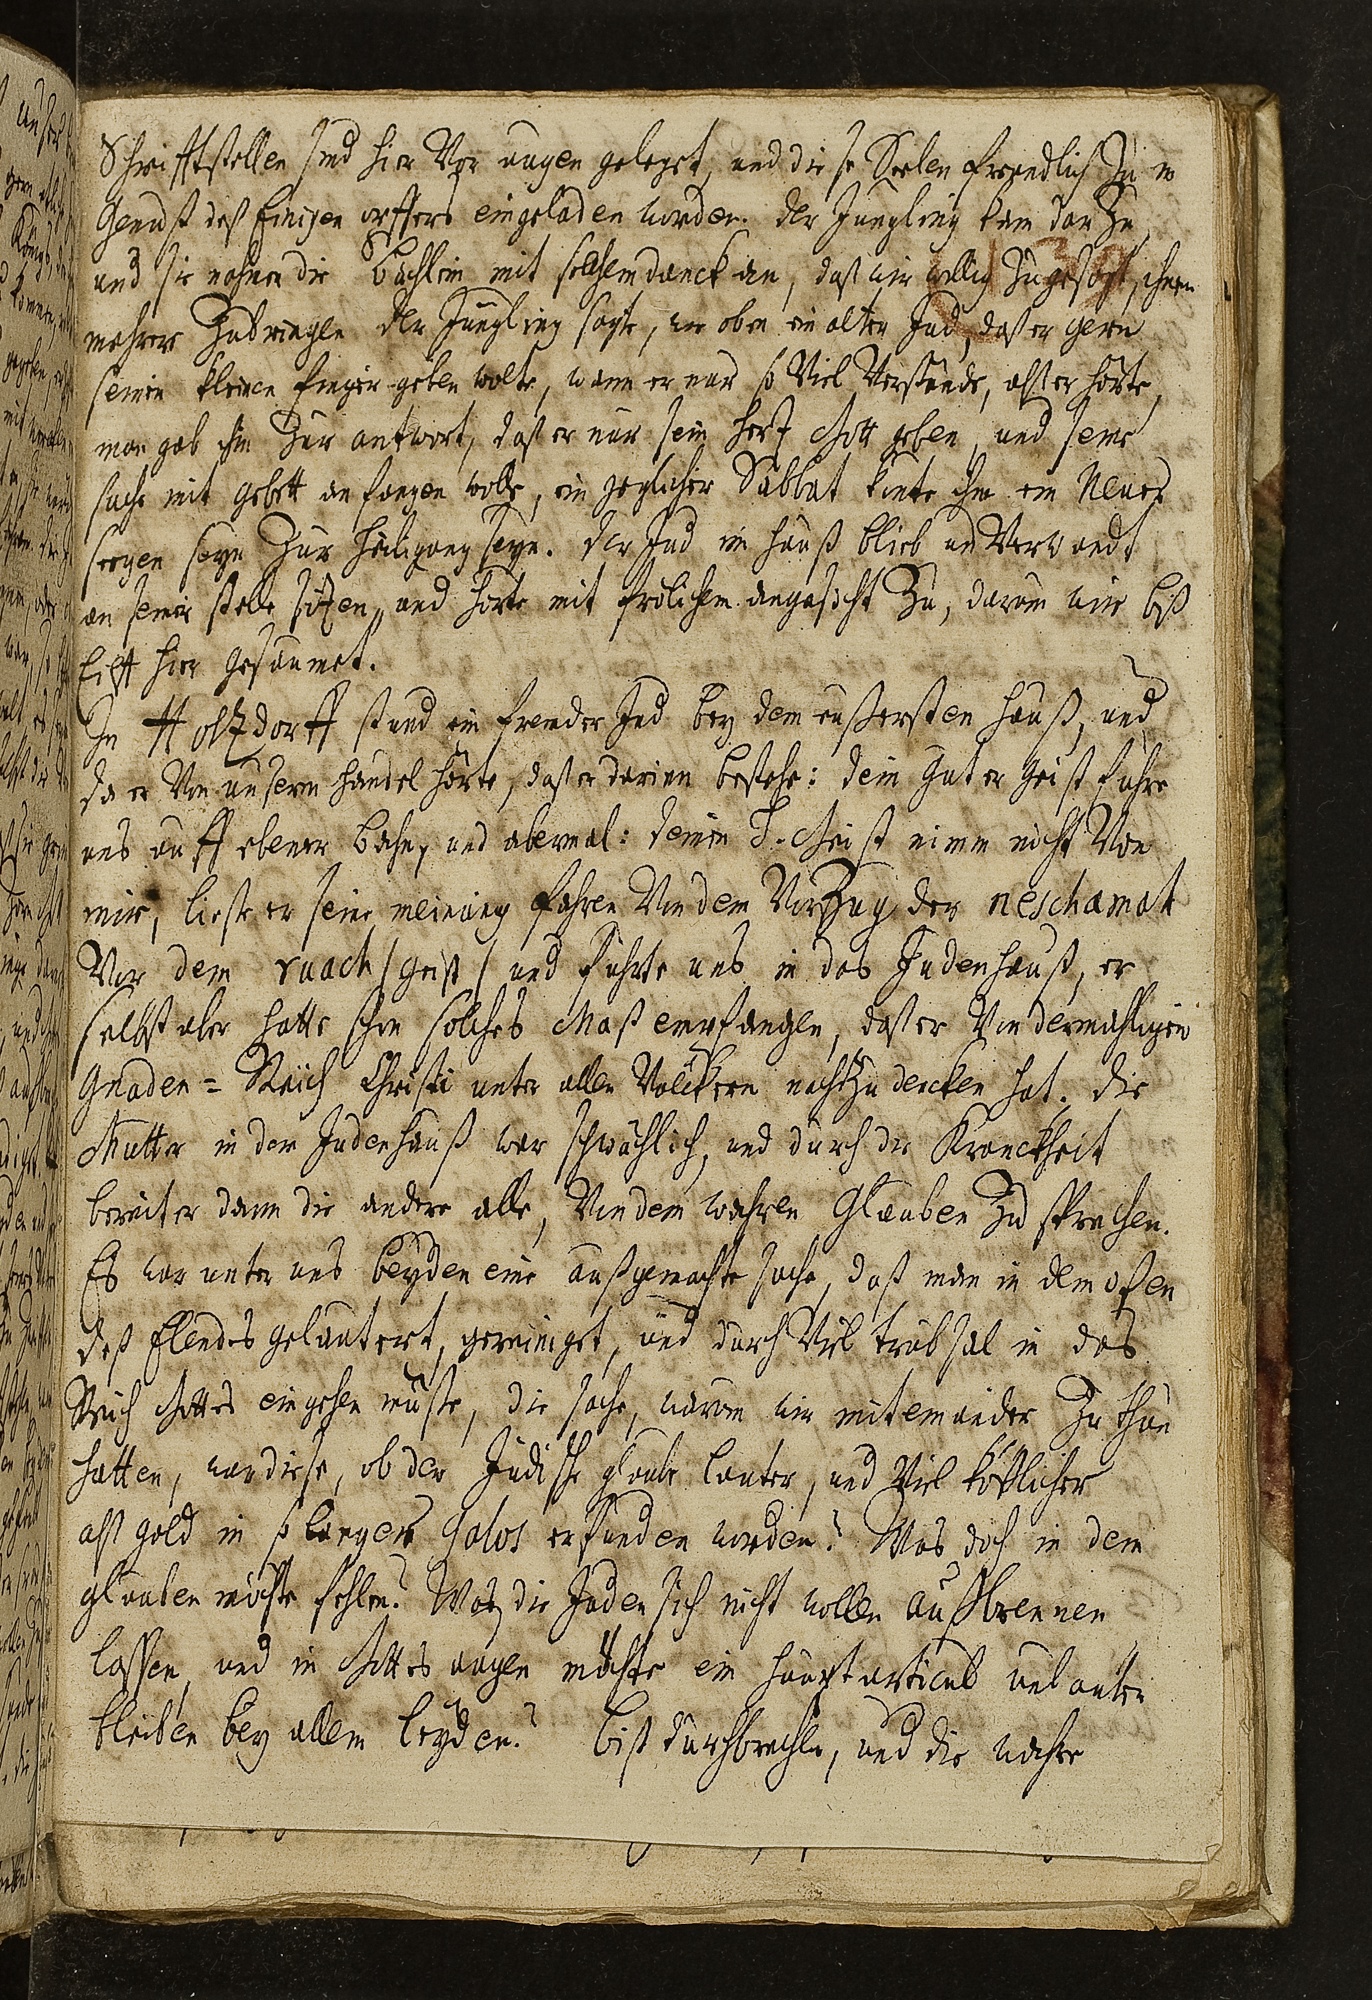 Schrifftstellen sind hier Vor augen geleget, und diese Seelen freundlich Zu m
Genuß deß Einigen opffers eingeladen worden. Der Jungling kam dar Zu,
und sie nahmen die Büchlein mit solchem danck an, daß wir willig Zugesagt, ihnen
mehrere Zubringen. Der Jüngling sagte, wie oben ein alter Jud, daß er gern
seinen kleinen finger geben wolte, wann er nur so Viel Verstünde, alß er hörte,
man gab ihm Zur antwort, daß er nur sein hertz Gott geben, und seine
sache mit gebett anfangen wolle, ein jeglicher Sabbat könte ihm ein Neuer
seegen seyn Zur heiligung seyn. Der Jud im hauß blieb un Verwandt
an seiner stelle sitzen, und hörte mit frölichem angesicht Zu, darum wir biß
Eilff hier gesäumet.
In Holtzdorff stund ein fremder Jud bey dem eußersten hauß, und
da er Von unserem handel hörte, daß er darinn bestehe: dein guter Geist führe
uns auff ebener bahn, und abermal: deinen H. Geist nimm nicht Von
mir, ließe er seine meinung fahren Von dem Vorzug der neschamah
Vor dem ruach / geist / und führte uns in das Judenhauß, er
selbst aber hatte schon solches Maß empfangen, daß er Von dermahligen
Gnaden=Reich Christi unter allen Völckern nachZudencken hat. Die
Mutter in dem Judenhauß war schwächlich, und durch die Kranckheit
bereiter dann die andere alle, Von dem wahren Glauben Zu sprechen.
Es war unter uns beyden eine außgemachte sache, daß man in dem ofen
deß Elendes geläutert, gereiniget, und durch Viel trübsal in das
Reich Gottes eingehen müste, die sache, warum wir miteinander Zu thun
hatten, war diese, ob der Jüdische glaube lauter, und Viel köstlicher
alß gold in so langer Galos erfunden worden? Was doch in dem
glauben möchte fehlen? Was die Juden sich nicht wollen außbrennen
lassen, und in Gottes augen möchte ein hauptarticul unlauter
bleiben bey allem leyden? biß durchbrechen, und die nahe